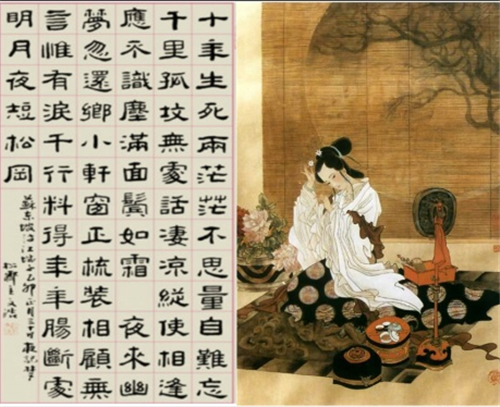 十年生死兩茫茫不思量自難忘
千里孤墳無處話淒涼縱使相逢
應不識塵滿面鬢如霜 夜來幽
夢忽還鄉小軒窗正梳裝相顧無
言惟有淚千行料得年年腸斷處
明月夜短松岡
蘇東坡詞江城子乙卯正月二十日夜記夢